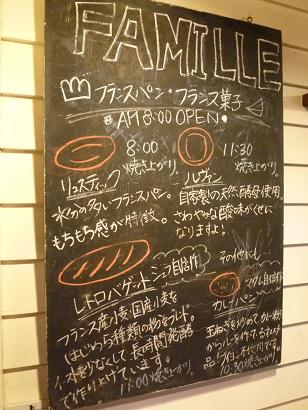 FAMILLE
フランスパン・フランス菓子
AM 8:00 OPEN
8:00
焼き上がり。
リュスティック
水分の多いフランスパン。
もちもち感が特徴。
11:30
焼き上がり。
ルヴァン
自家製の天然酵母使用。
さわやかな酸味がくせに
なりますよ!
レトロバゲット シェフ自信作
フランス産小麦、国産小麦を
はじめ 種類の粉をブレンド。
イーストを少なくして長時間発酵
で作り上げています。
11:00焼き上がり
その他にも
マダム自信作
カレーパン
玉ねぎを炒めてカレー粉
からルーを作る
10:30焼き上がり